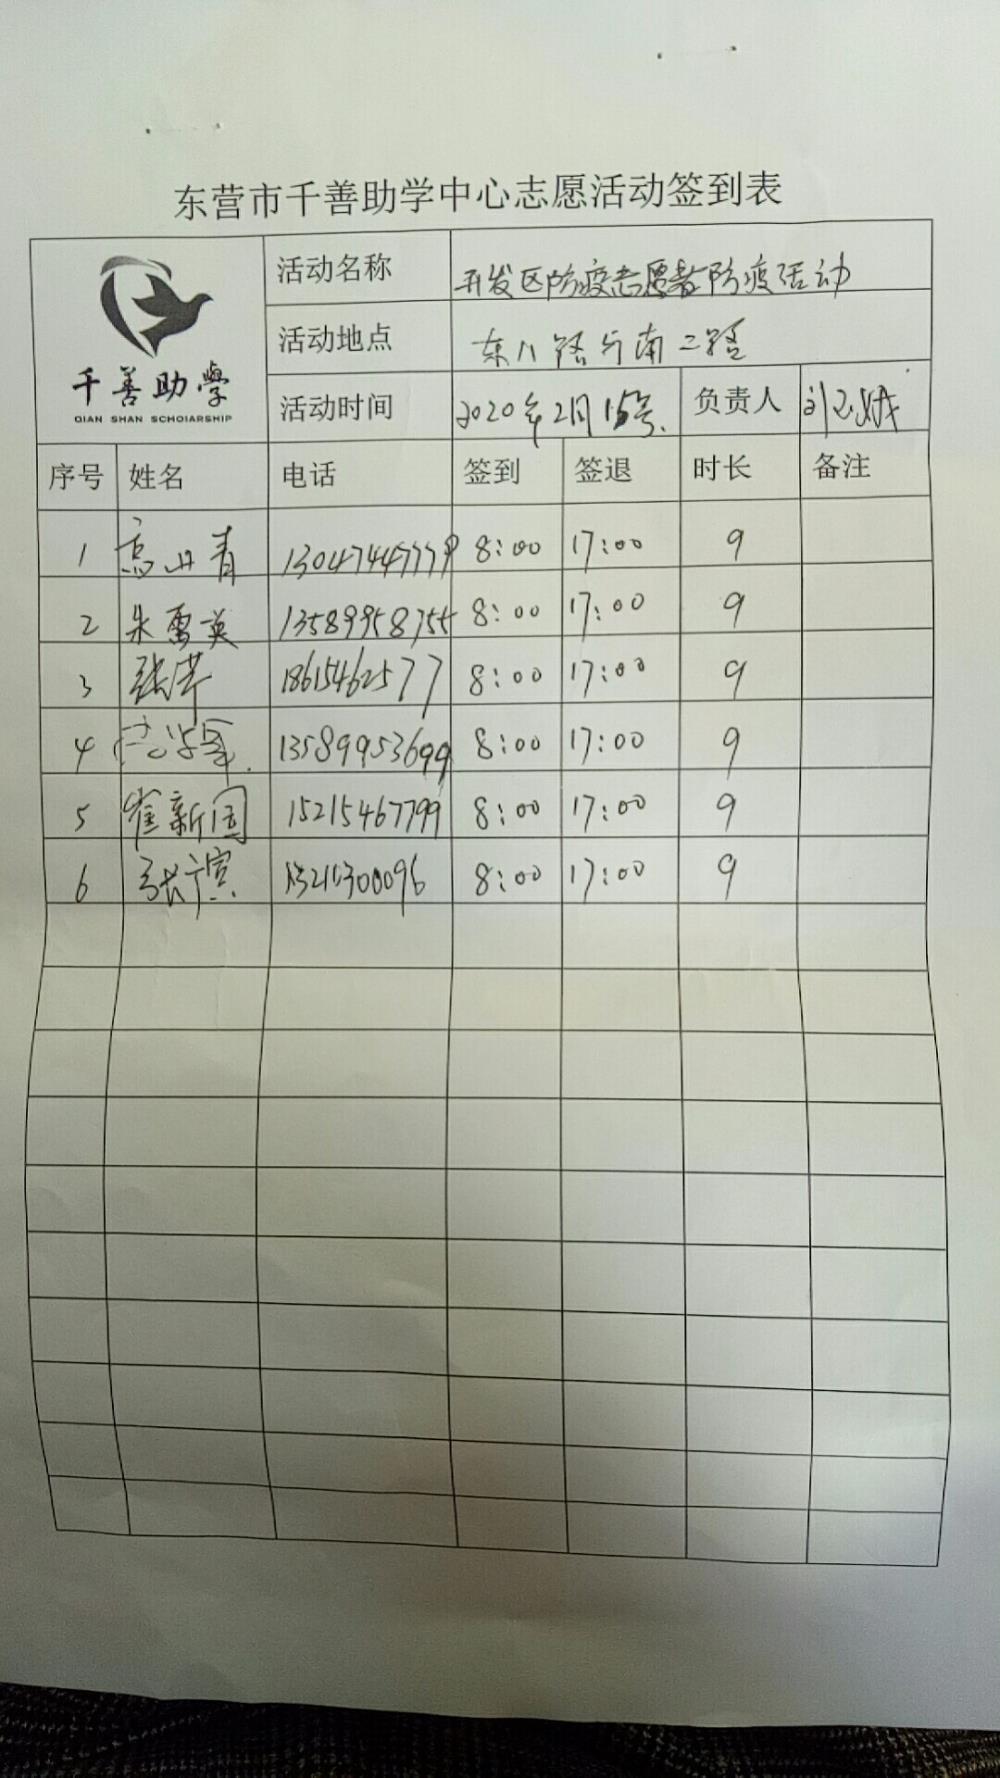 东营市千善助学中心志愿活动签到表
千善助學
QIAN SHAN SCHOIARSHIP
活动名称 开发区防疫志愿者防疫活动
活动地点 东八路与南二路
活动时间 2020年2月15号 负责人 刘
序号 姓名 电话 签到 签退 时长 备注
1 高丹青 13047447779 8:00 17:00 9
2 朱雪英 13589958755 8:00 17:00 9
3 张萍 18615462577 8:00 17:00 9
4 13589953699 8:00 17:00 9
5 崔新国 15215467799 8:00 17:00 9
6 张 8:00 17:00 9